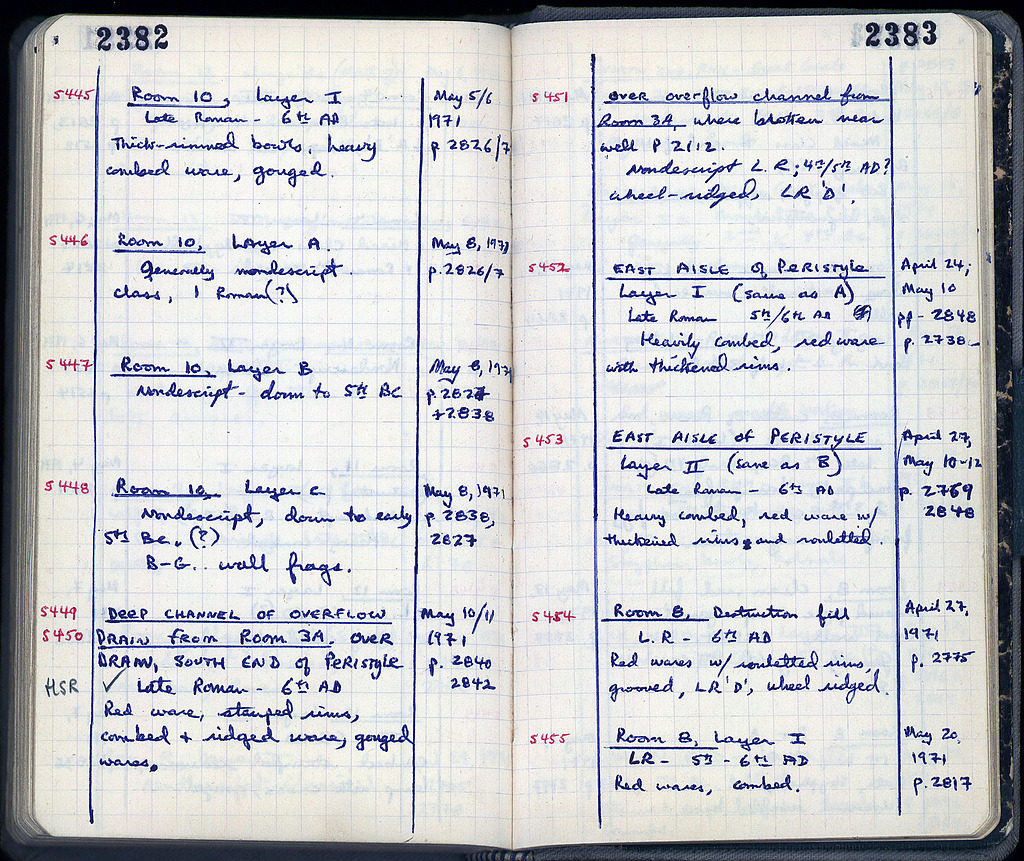 2382
S445 Room 10, Layer I May 5/6
Late Roman - 6th AD 1971
Thick-rimmed bowls, heavy p 2826/7
combed ware, gouged.
S446 Room 10, Layer A. May 8, 1971
Generally nondescript p. 2826/7
class, 1 Roman(?)
S447 Room 10, Layer B May 8, 1971
Nondescript - down to 5th BC p. 2827
+2838
S448 Room 10, Layer C May 8, 1971
Nondescript, down to early p. 2838,
5th BC. (?) 2827
B-G. wall frags.
S449 DEEP CHANNEL OF OVERFLOW May 10/11
S450 DRAIN from Room 3A. OVER 1971
DRAIN, SOUTH END of PERISTYLE p. 2840
HSR ✓ Late Roman - 6th AD 2842
Red ware, stamped rims,
combed + ridged ware, gouged
wares.
2383
S451 Over overflow channel from
Room 3A, where broken near
well P 21:2.
Nondescript L.R.; 4th/5th AD?
wheel-ridged, LR 'D'.
S452 EAST AISLE of PERISTYLE April 24;
Layer I (same as A) May 10
Late Roman 5th/6th AD pp - 2848
Heavily combed, red ware p. 2738-
with thickened rims.
S453 EAST AISLE of PERISTYLE April 27,
Layer II (same as B) May 10-12
Late Roman - 6th AD p. 2769
Heavy combed, red ware w/ 2848
thickened rims, and rouletted.
S454 Room 8, Destruction fill April 27,
L.R - 6th AD 1971
Red wares w/ rouletted rims, p. 2775
grooved, LR 'D', wheel ridged.
S455 Room 8, Layer I May 20,
LR - 5th - 6th AD 1971
Red wares, combed. p. 2817